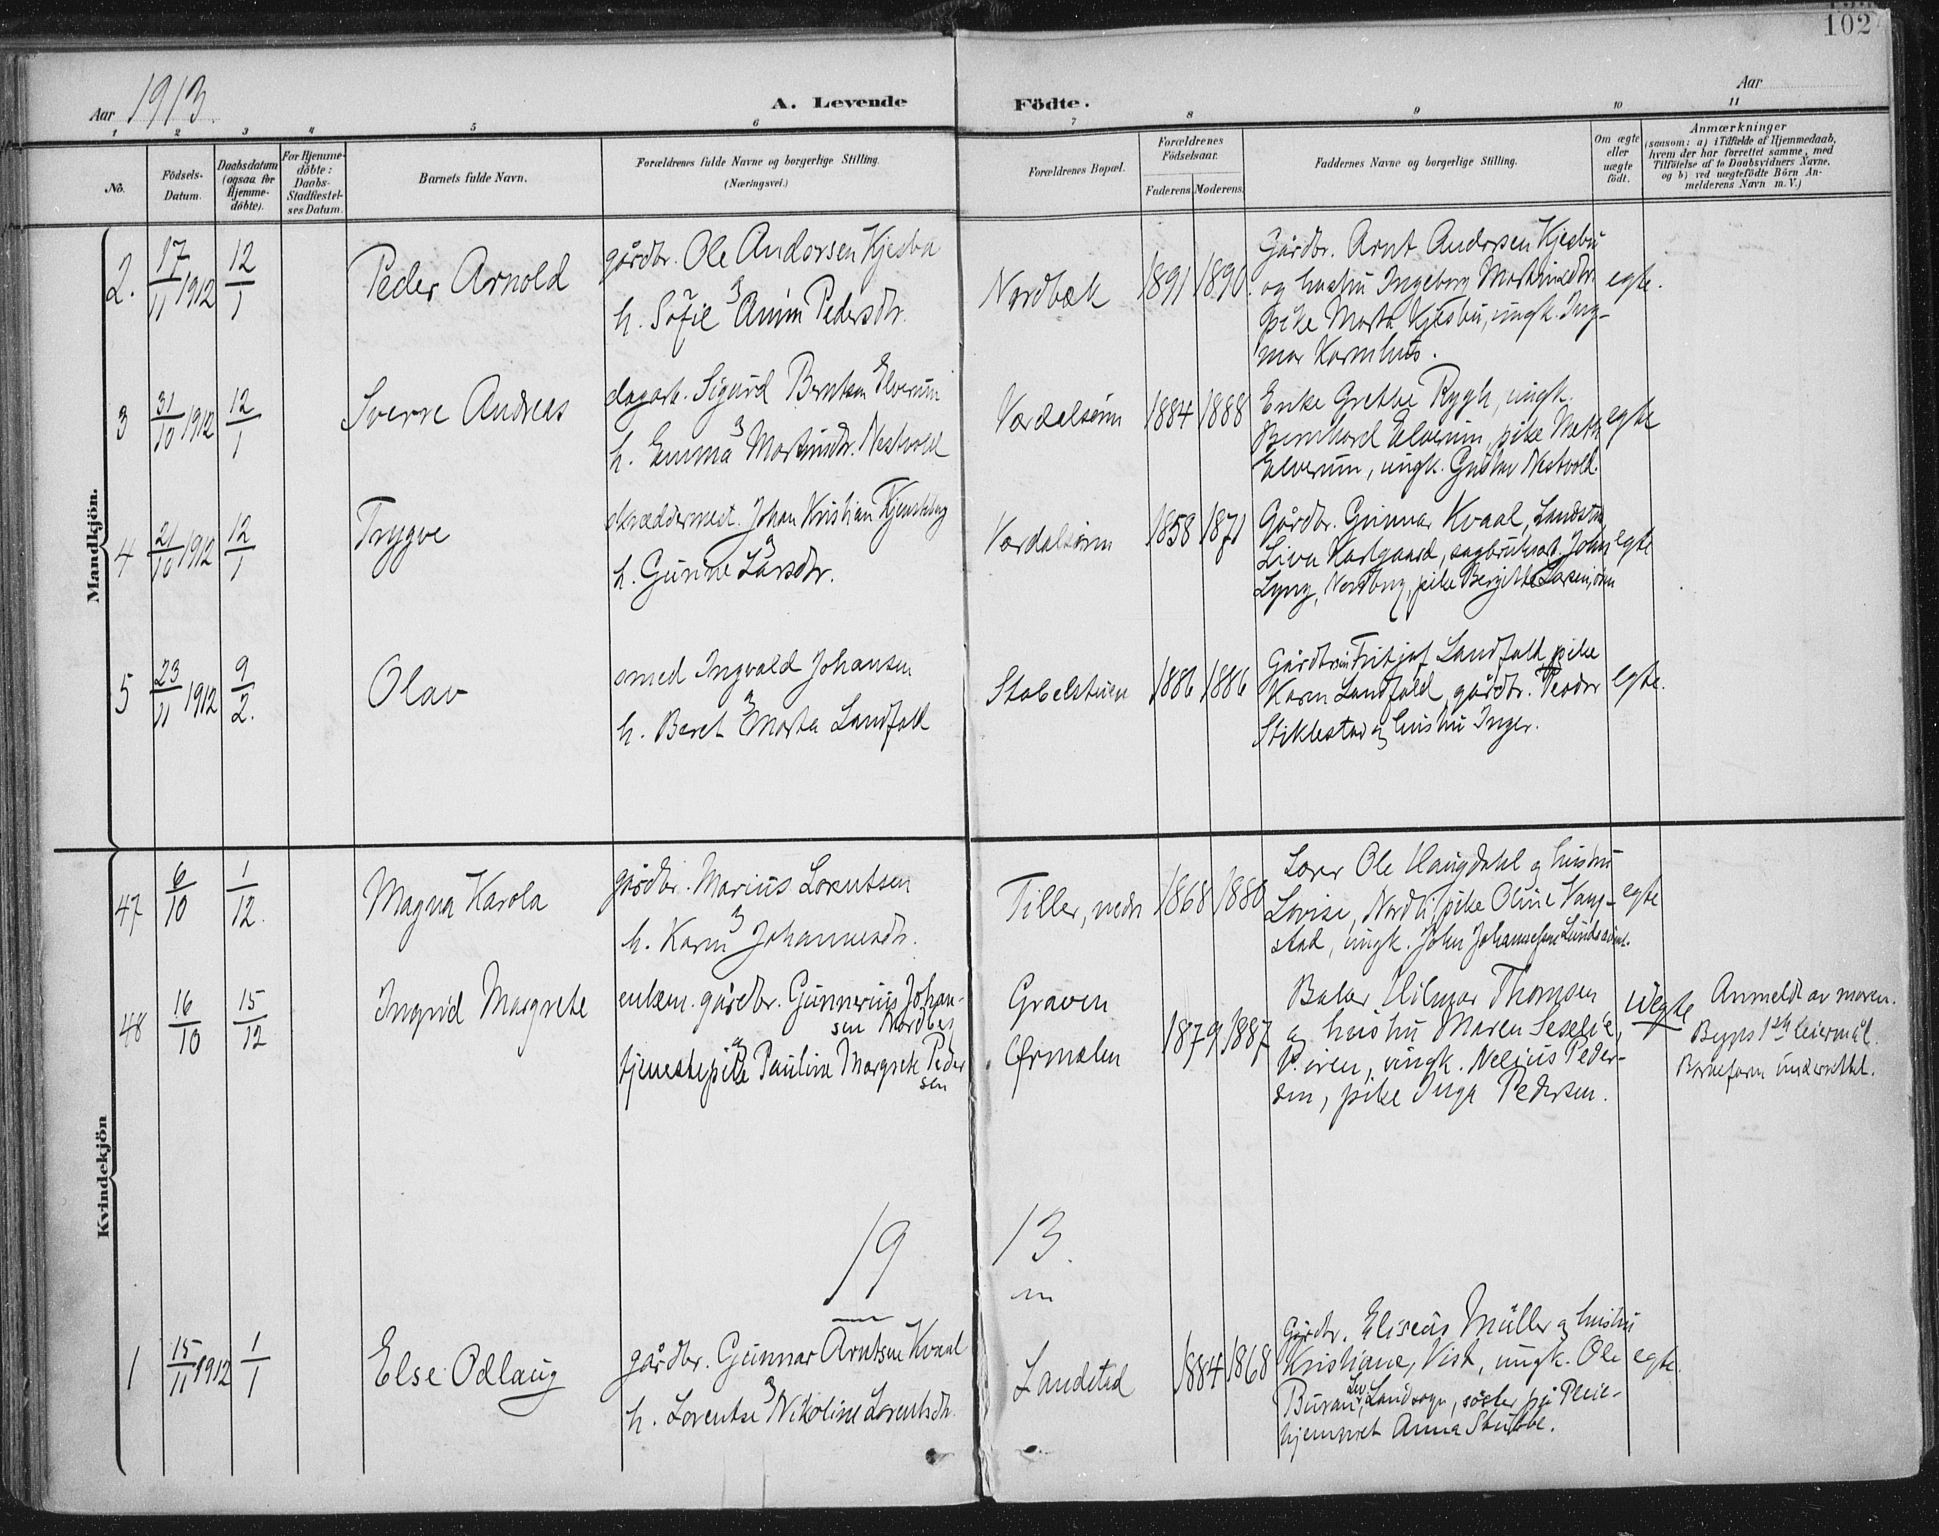 102
Aar 1913.
A. Levende Födte.
Aar
1 2 3 4 5 6 7 8 9 10 11
No.
Födsels-Datum.
Daabsdatum (ogsaa for Hjemme-döbte).
For Hjemme-döbte: Daabs-Stadfæstel-ses Datum.
Barnets fulde Navn.
Forældrenes fulde Navne og borgerlige Stilling. (Næringsvei.)
Forældrenes Bopæl.
Forældrenes Födselsaar.
Faderens. Moderens.
Faddernes Navne og borgerlige Stilling.
Om ægte eller uægte födt.
Anmærkninger
(saasom: a) i Tilfælde af Hjemmedaab, hvem der har forrettet samme, med Tilföielse af to Daabsvidners Navne, og b) ved uægtefödte Börn An-melderens Navn m. V.)
Mandkjön.
2. 17/11 1912 12/1 Peder Arnold
gårdbr. Ole Andorsen Kjesbu
h. Sofie Anna Pedersdtr.
Nordbæk 1891 1890
Gårdbr. Arnt Andorsen Kjesbu
og hustru Ingeborg Martinusdtr.
pike Marta Kjesbu, ungk. Ing-
mar Karmhus.
egte.
3 31/10 1912 12/1 Sverre Andreas
dagarb. Sigurd Berntsen Elverum
h. Emma Martinsdtr. Nestvold
Værdalsøren 1884 1888
Enke Grethe Rygh, ungk.
Bernhard Elverum, pike Meth
Elverum, ungk. Gustav Nestvold.
egte
4 21/10 1912 12/1 Trygve
skræddermest. Johan Kristian
h. Gunne Larsdtr.
Værdalsøren 1858 1871
Gårdbr. Gunnar Kvaal, Landstad
Liva, sagbruksarb. John
Lyng, Nordberg, pike Bergitte Larsen, øren
egte
5 23/11 1912 9/2. Olav
smed Ingvald Johansen
h. Beret Marta Landfald
Stabelstuen 1886 1886
Gårdbr. Fritjof Landfald, pike
Karen Landfald, gårdbr. Peder
Stiklestad og hustru Inger.
egte.
Kvindekjön
47 6/10 1/12. Magna Karola
gårdbr. Marius Lorentsen
h. Karen Johannesdtr.
Tiller, nedre 1868 1880
Lærer Ole Haugdahl og hustru
Lovise, Nordli, pike Oline Vang-
stad, ungk. John Johannessen
egte
48 16/10 15/12 Ingrid Margrete
enkem. gårdbr. Gunnerius Johan-
sen Nordberg
tjenestepike Pauline Margrete Peder
sen
Graven
Ørmælen
1879 1887
Baker Hilmar Thomsen
og hustru Maren Seselie,
Ø.øren, ungk. Nelius Peder-
sen, pike Inga Pedersen.
uegte
Anmeldt av moren.
Begges 1ste leiermål.
Barneform. underrettet.
19 13.
1 15/11 1912 1/1 Else Odlaug
gårdbr. Gunnar Arntsen Kvaal
h. Lorentse Nikoline Lorentsdtr.
Landstad 1884 1868
Gårdbr. Eliseus Müller og hustru
Kristiane, Vist, ungk. Ole
Buran, Lev. Landsogn, søster på Pleie-
hjemmet Anna Stubbe.
egte.